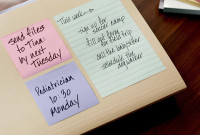 send files
to Tina
by next
Tuesday
This week—
sign up for
soccer camp
fill out form
for field trip
call the babysitter
schedule the
Pediatrician
10:30
Monday